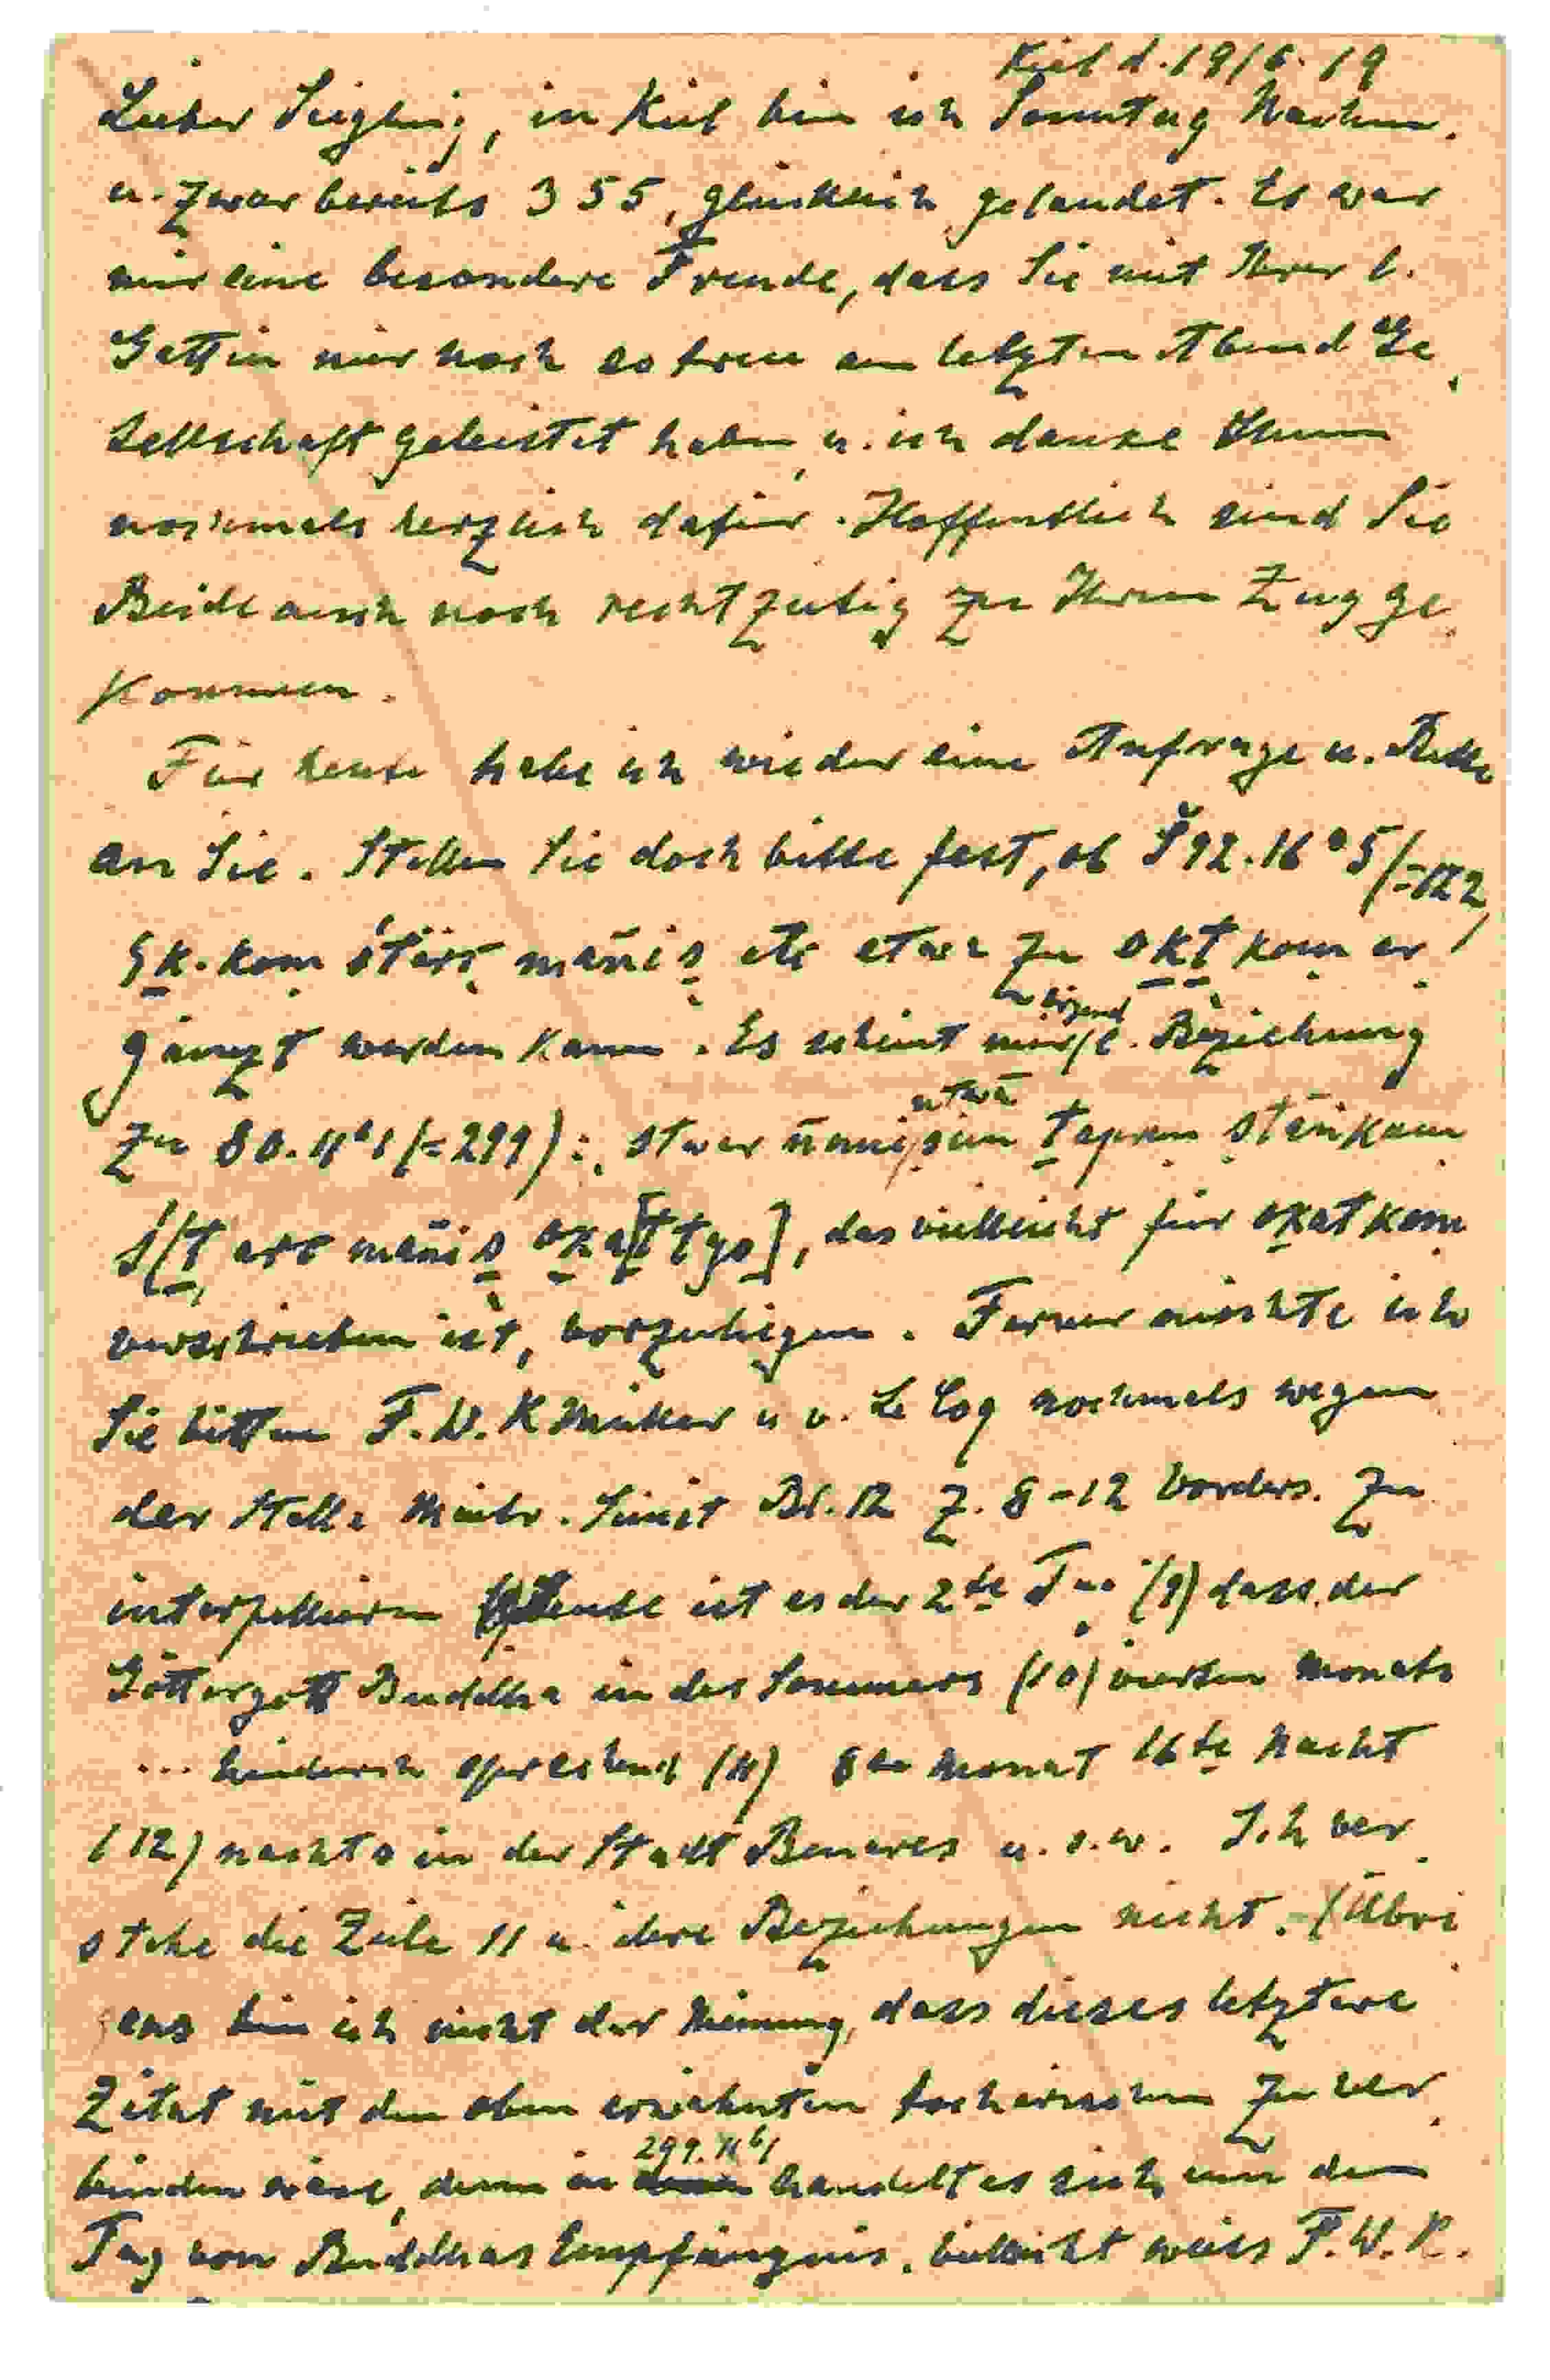 Kiel d. 19/6. 19
Lieber Siegling, in Kiel bin ich Sonntag Nachm.
u. zwar bereits 3 55, glücklich gelandet. Es war
mir eine besondere Freude, dass Sie mit Ihrer l.
Gattin mir noch so treu am letzten Abend Ge-
sellschaft geleistet haben, u. ich danke Ihnen
nochmals herzlich dafür. Hoffentlich sind Sie
Beide auch noch rechtzeitig zu Ihrem Zug ge-
kommen.
Für heute habe ich wieder eine Anfrage u. Bitte
an Sie. Stellen Sie doch bitte fest, ob Š 92.16
kom mañis etc etwa zu okt kom er-
gänzt werden kann. Es scheint mir irgend e. Beziehung
zu 80. 11 b 1 (= 299): stwar
mañis okat, das vielleicht für okat kom
verschrieben ist, vorzuliegen. Ferner möchte ich
Sie bitten F. W. K Müller u v. Le Coq nochmals wegen
der Stelle Maitr. Simit Bl. 12 Z. 8-12 Vorders. zu
interpellieren heute ist es der 2te Tag (9) dass der
Göttergott Buddha in des Sommers (10) vierten Monats
... sprechend (11) 8ten Monat 16te Nacht
(12) nachts in der Stadt Benares u. s. w. Ich ver-
stehe die Zeile 11 u. ihre Beziehungen nicht. - (Übri-
gens bin ich nicht der Meinung, dass dieses letztere
Zitat mit dem oben erwähnten tocharischen zu ver-
binden wäre, denn in 299. 11 b 1 handelt es sich um den
Tag von Buddhas Empfängnis. Vielleicht weiss F. W. K.